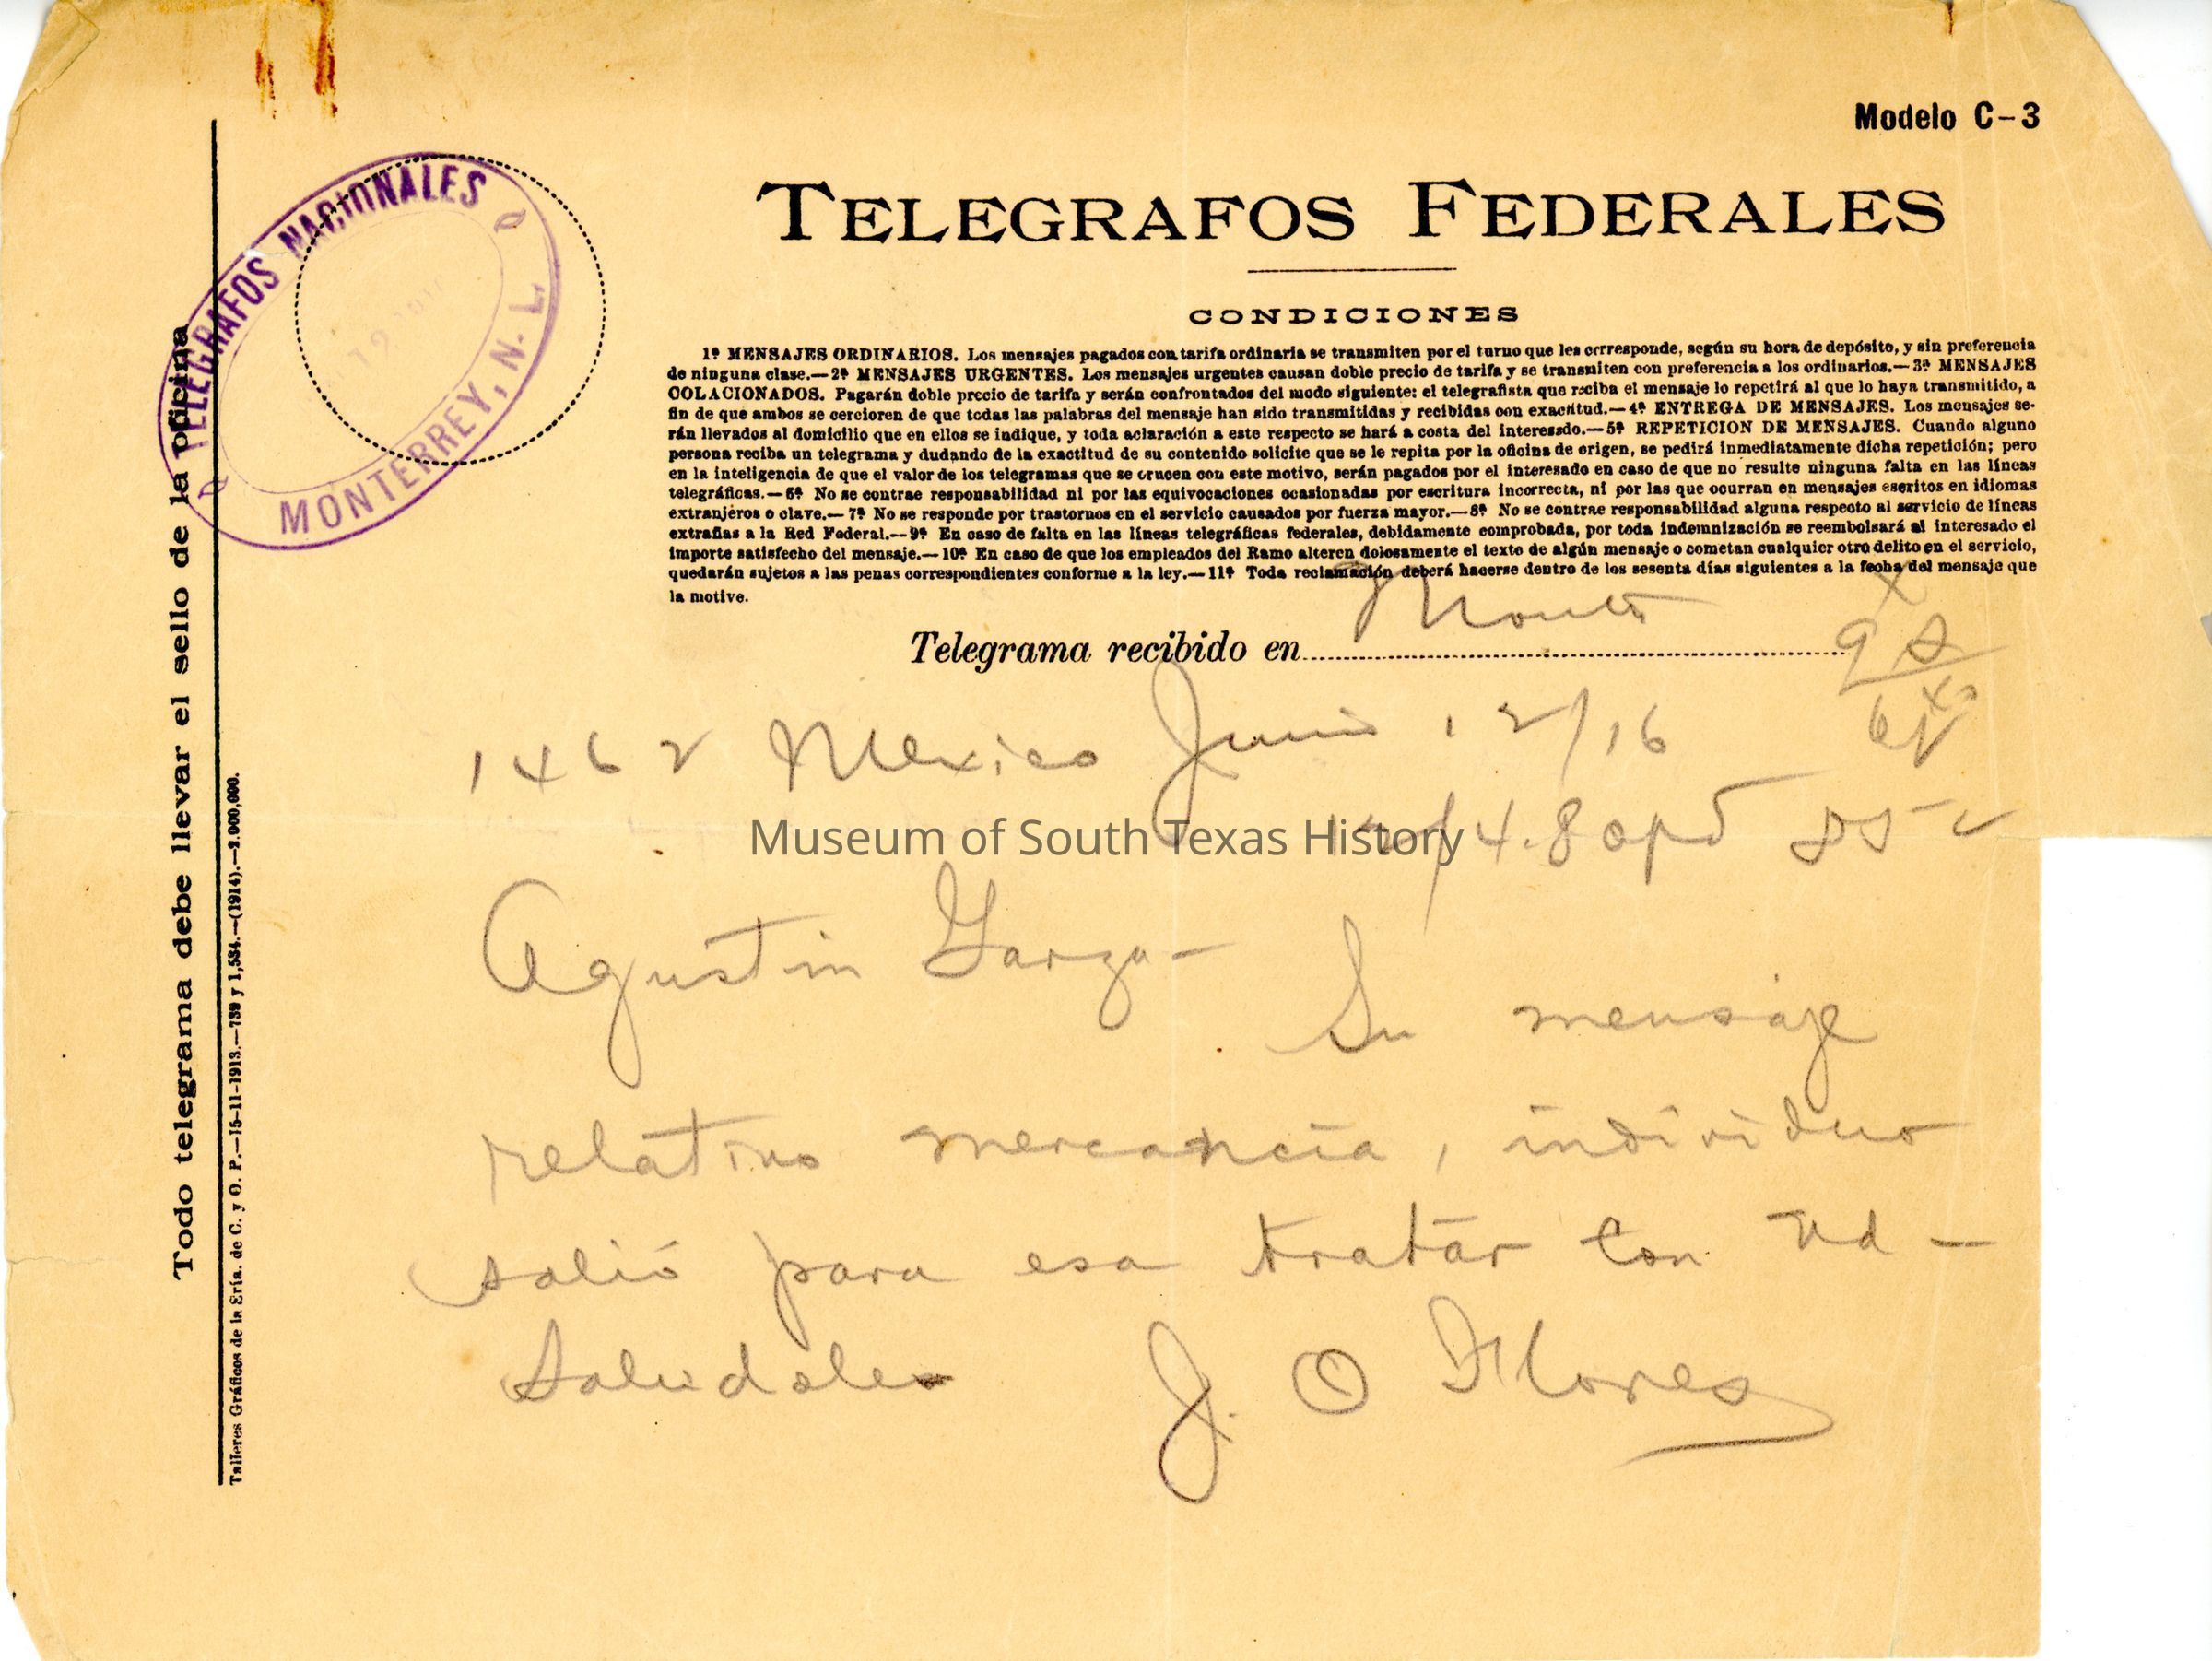 Modelo C-3
TELEGRAFOS FEDERALES
CONDICIONES
1ª MENSAJES ORDINARIOS. Los mensajes pagados con tarifa ordinaria se transmiten por el turno que les corresponde, según su hora de depósito, y sin preferencia
de ninguna clase.—2ª MENSAJES URGENTES. Los mensajes urgentes causan doble precio de tarifa y se transmiten con preferencia a los ordinarios.—3ª MENSAJES
COLACIONADOS. Pagarán doble precio de tarifa y serán confrontados del modo siguiente: el telegrafista que reciba el mensaje lo repetirá al que lo haya transmitido, a
fin de que ambos se cercioren de que todas las palabras del mensaje han sido transmitidas y recibidas con exactitud.—4ª ENTREGA DE MENSAJES. Los mensajes se-
rán llevados al domicilio que en ellos se indique, y toda aclaración a este respecto se hará a costa del interesado.—5ª REPETICION DE MENSAJES. Cuando alguno
persona reciba un telegrama y dudando de la exactitud de su contenido solicite que se le repita por la oficina de origen, se pedirá inmediatamente dicha repetición; pero
en la inteligencia de que el valor de los telegramas que se crucen con este motivo, serán pagados por el interesado en caso de que no resulte ninguna falta en las líneas
telegráficas.—6ª No se contrae responsabilidad ni por las equivocaciones ocasionadas por escritura incorrecta, ni por las que ocurran en mensajes escritos en idiomas
extranjeros o clave.—7ª No se responde por trastornos en el servicio causados por fuerza mayor.—8ª No se contrae responsabilidad alguna respecto al servicio de líneas
extrañas a la Red Federal.—9ª En caso de falta en las líneas telegráficas federales, debidamente comprobada, por toda indemnización se reembolsará al interesado el
importe satisfecho del mensaje.—10ª En caso de que los empleados del Ramo alteren dolosamente el texto de algún mensaje o cometan cualquier otro delito en el servicio,
quedarán sujetos a las penas correspondientes conforme a la ley.—11ª Toda reclamación deberá hacerse dentro de los sesenta días siguientes a la fecha del mensaje que
la motive.
Telegrama recibido en
1462 Mexico Junio 12/16
Museum of South Texas History
Agustin Garza—
Su mensaje
relativo mercancía, individuo
salió para esa tratar con Ud—
Saludoles
J. O Flores
TELEGRAFOS NACIONALES
MONTERREY, N. L.
Todo telegrama debe llevar el sello de la oficina
Talleres Gráficos de la Sría. de C. y O. P.—15-11-1913.—739 y 1,534.—(1914).—2.000,000.